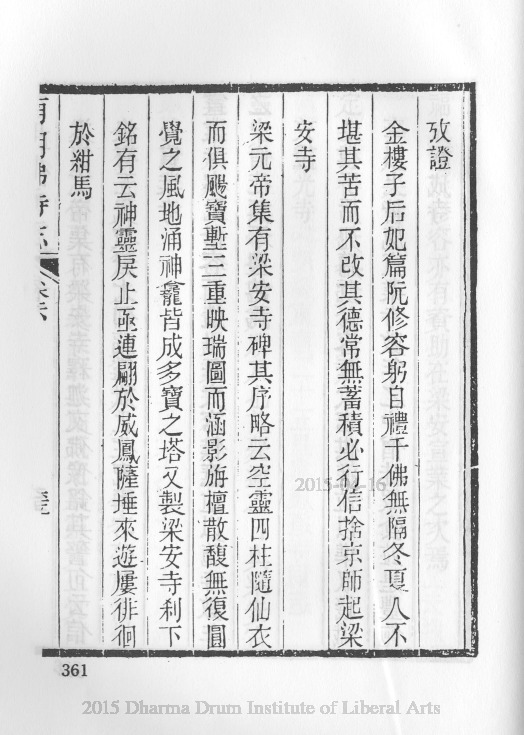 攷證
金樓子后妃篇阮修容躬自禮千佛無隔冬夏人不
堪其苦而不改其德常無蓄積必行信捨京師起梁
安寺
梁元帝集有梁安寺碑其序略云空靈四柱隨仙衣
而俱颺寶塹三重映瑞圖而涵影旃檀散馥無復圓
覺之風地涌神龕皆成多寶之塔又製梁安寺刹下
銘有云神靈戾止亟連翩於威鳳薩埵來遊屢徘徊
於紺馬
361
2015-04-16
2015 Dharma Drum Institute of Liberal Arts